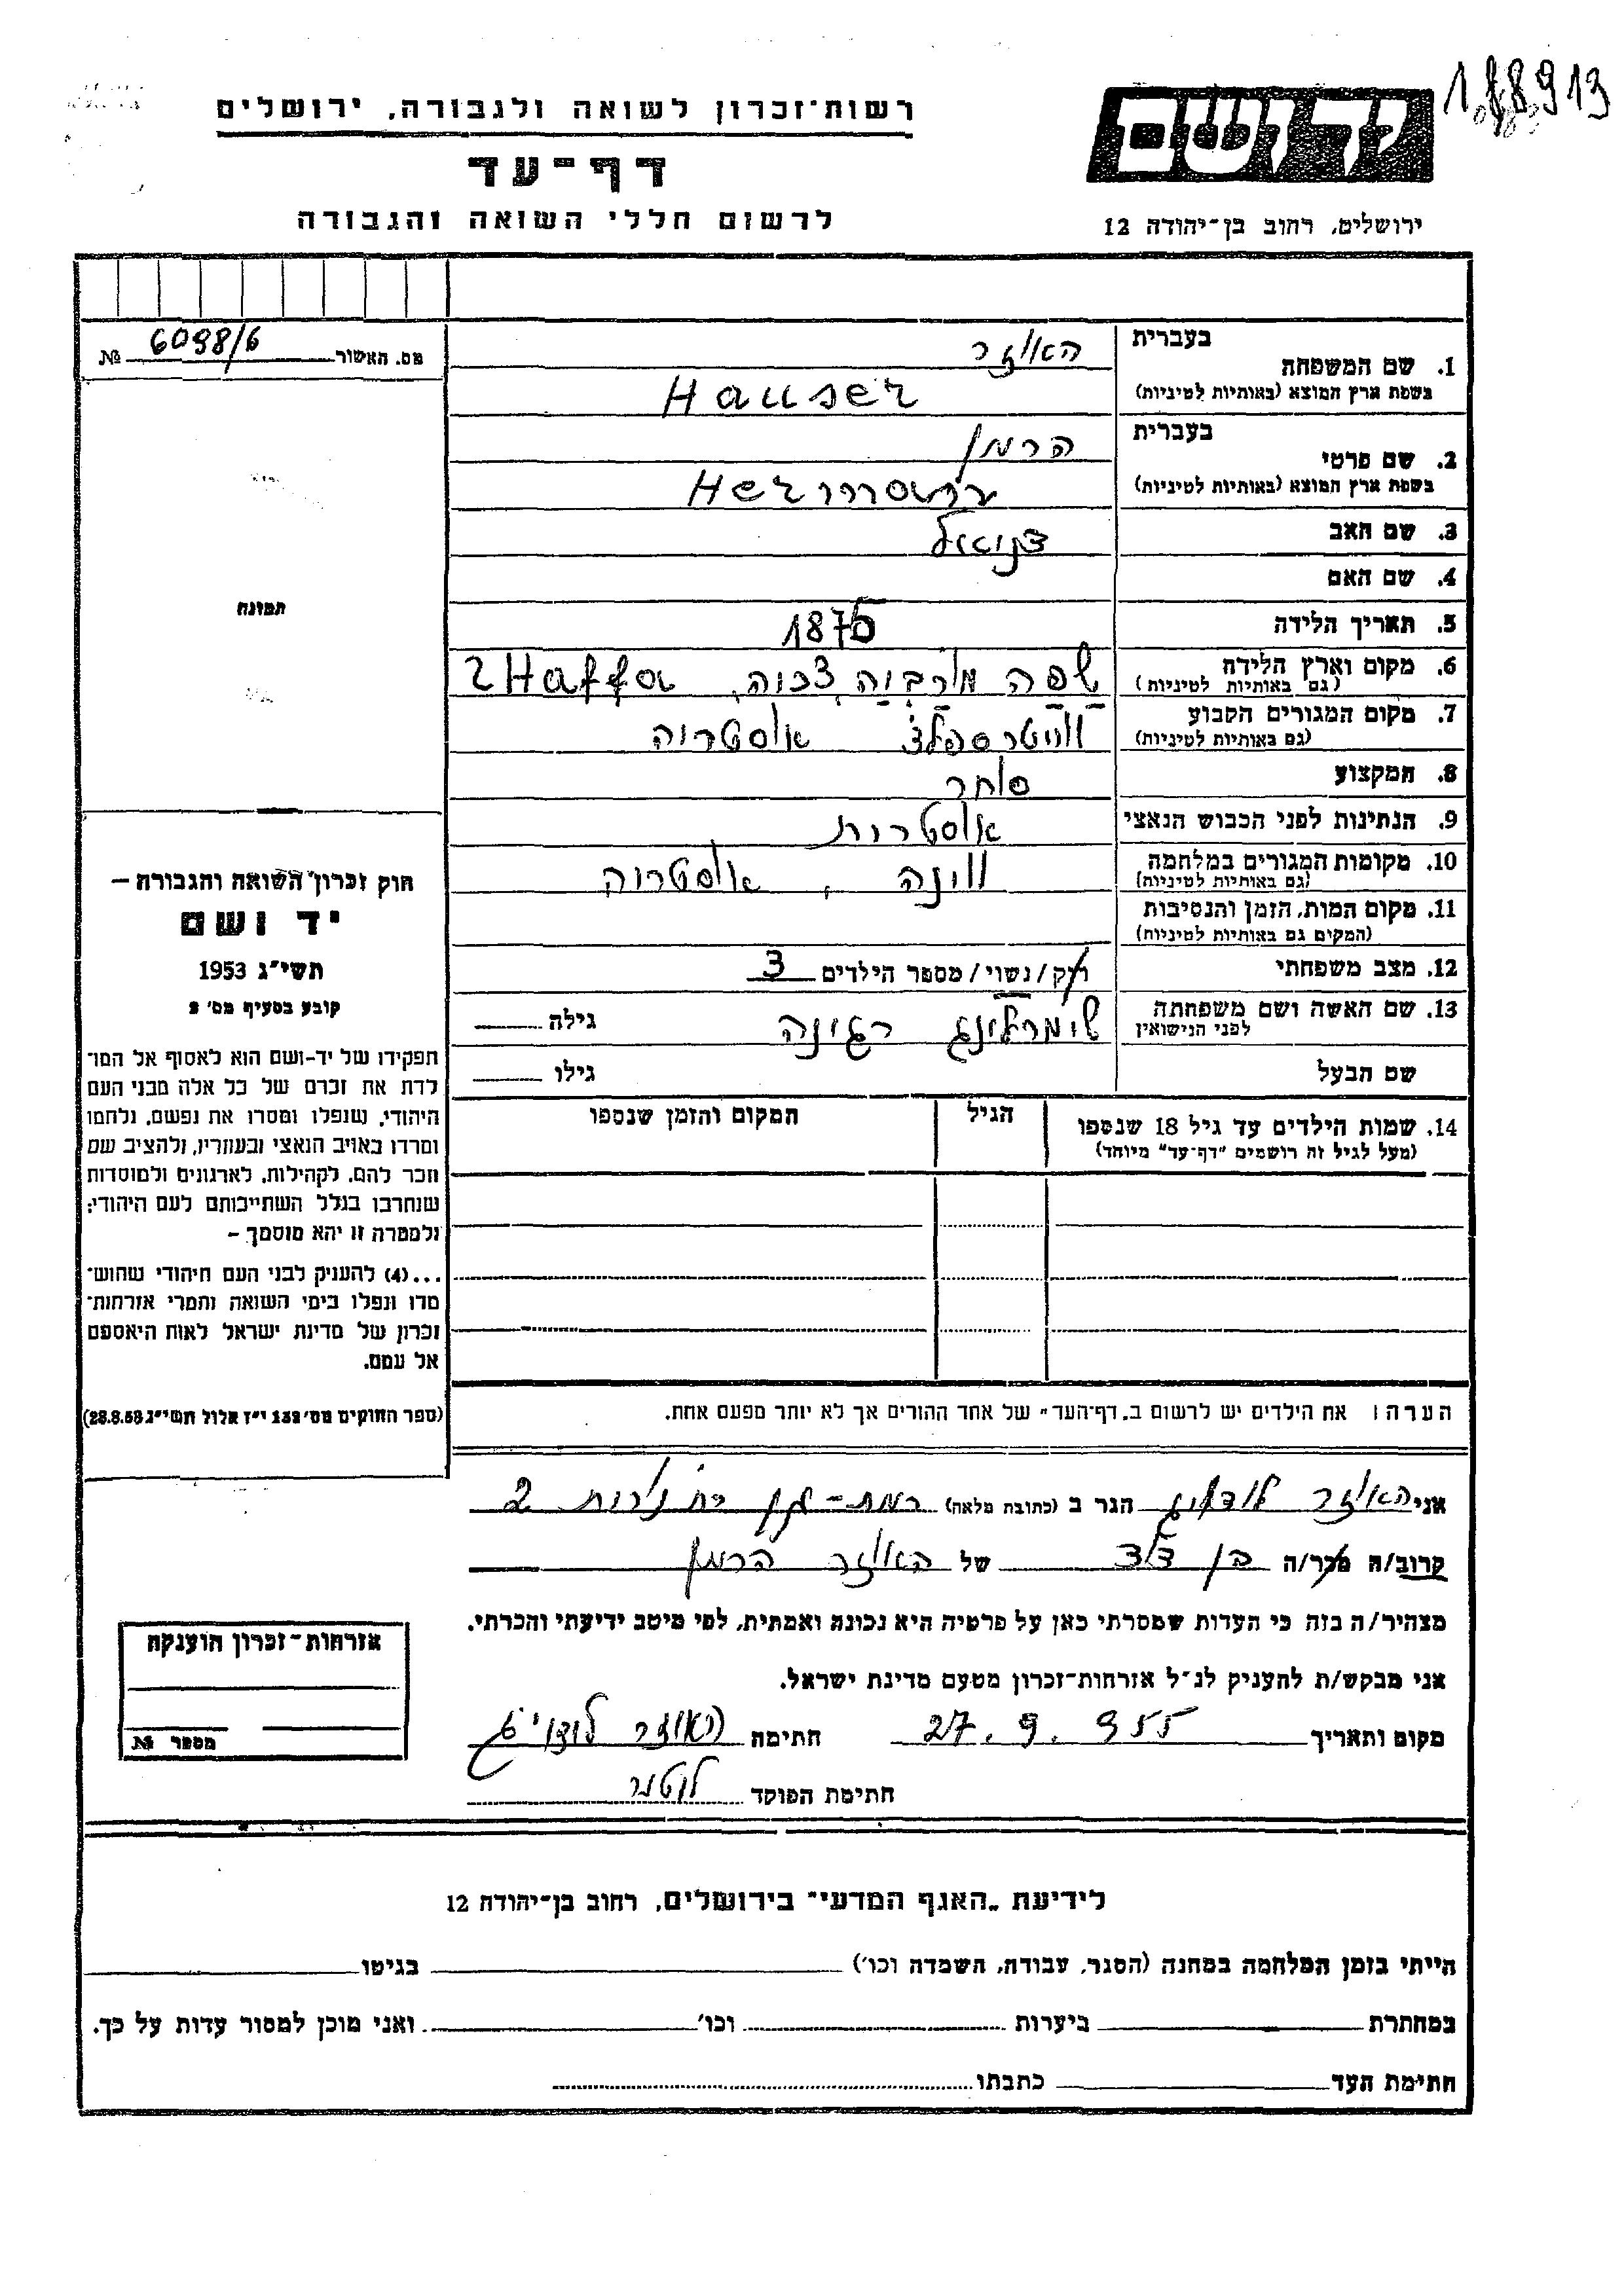 188913
רשות־זכרון לשואה ולגבורה, ירושלים
דף־עד
לרשום חללי השואה והגבורה
יד ושם
ירושלים, רחוב בן־יהודה 12
מס. האשור 6098/6 №
בעברית
האוזר
1. שם המשפחה
בשפת ארץ המוצא (באותיות לטיניות) Hauser
בעברית
הרמן
2. שם פרטי
בשפת ארץ המוצא (באותיות לטיניות) Hermann
3. שם האב דניאל
4. שם האם
5. תאריך הלידה 1875
6. מקום וארץ הלידה
(גם באותיות לטיניות) שפה מורביה, צ'כיה, Schaffa
7. מקום המגורים הקבוע
(גם באותיות לטיניות) אוסטריה
8. המקצוע סוחר
9. הנתינות לפני הכבוש הנאצי אוסטרית
10. מקומות המגורים במלחמה
(גם באותיות לטיניות) ווינה, אוסטריה
11. מקום המות, הזמן והנסיבות
(המקום גם באותיות לטיניות)
12. מצב משפחתי רוק/נשוי/מספר הילדים 3
13. שם האשה ושם משפחתה
לפני הנישואין רגינה גילה
שם הבעל גילו
14. שמות הילדים עד גיל 18 שנספו הגיל המקום והזמן שנספו
(מעל לגיל זה רושמים "דף־עד" מיוחד)
הערה: את הילדים יש לרשום ב„דף־העד" של אחד ההורים אך לא יותר מפעם אחת.
תמונה
חוק זכרון השואה והגבורה –
יד ושם
תשי"ג 1953
קובע בסעיף מס' 2
תפקידו של יד-ושם הוא לאסוף אל המו־
לדת את זכרם של כל אלה מבני העם
היהודי, שנפלו ומסרו את נפשם, נלחמו
ומרדו באויב הנאצי ובעוזריו, ולהציב שם
וזכר להם, לקהילות, לארגונים ולמוסדות
שנחרבו בגלל השתייכותם לעם היהודי;
ולמטרה זו יהא מוסמך –
...(4) להעניק לבני העם היהודי שהוש־
מדו ונפלו בימי השואה והמרי אזרחות־
זכרון של מדינת ישראל לאות היאספם
אל עמם.
(ספר החוקים מס' 132 י"ז אלול תשי"ג 28.8.53)
אני האוזר לודוויג הגר ב (כתובת מלאה) רמת-גן 2
קרוב/ה מכר/ה בן דוד של האוזר הרמן
מצהיר/ה בזה כי העדות שמסרתי כאן על פרטיה היא נכונה ואמתית, לפי מיטב ידיעתי והכרתי.
אני מבקש/ת להעניק לנ"ל אזרחות־זכרון מטעם מדינת ישראל.
מקום ותאריך 27.9.955 חתימה האוזר לודויג
חתימת הפוקד
אזרחות־זכרון הוענקה
מספר №
לידיעת „האגף המדעי" בירושלים, רחוב בן־יהודה 12
הייתי בזמן המלחמה במחנה (הסגר, עבודה, השמדה וכו') בגיטו
במחתרת ביערות וכו' ואני מוכן למסור עדות על כך.
חתימת העד כתבתו